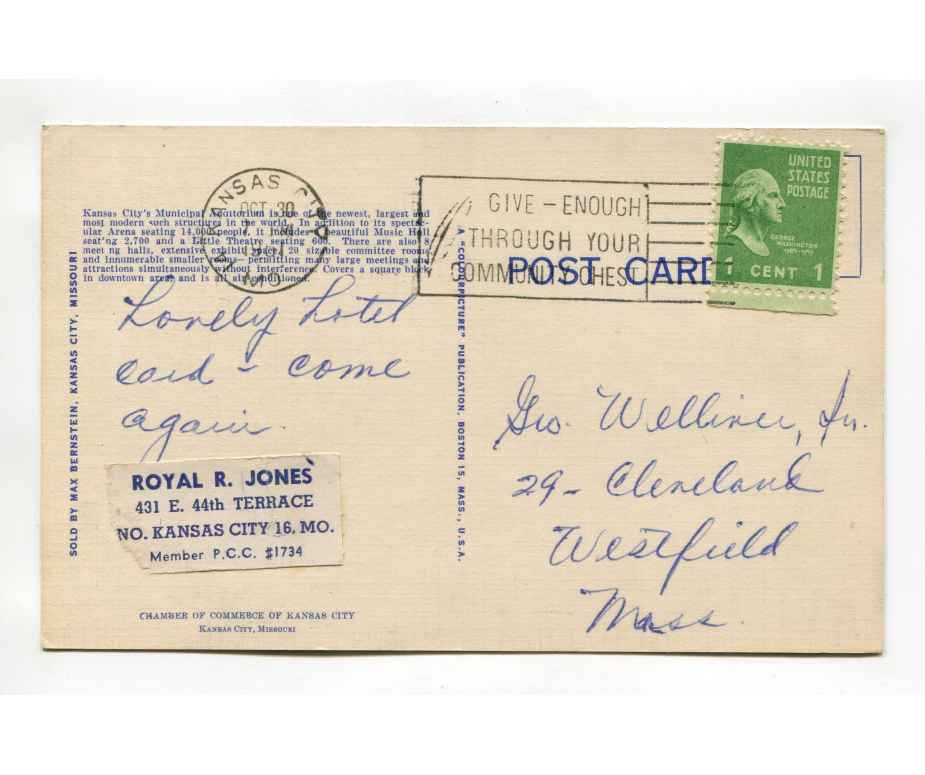 KANSAS CITY
OCT 30
MO.
GIVE - ENOUGH
THROUGH YOUR
COMMUNITY CHEST
UNITED
STATES
POSTAGE
GEORGE
WASHINGTON
1 CENT 1
POST CARD
Kansas City's Municipal Auditorium is one of the newest, largest and
most modern such structures in the world. In addition to its spectac-
ular Arena seating 14,000 people, it includes a beautiful Music Hall
seat'ng 2,700 and a Little Theatre seating 600. There are also 8
meet ng halls, extensive exhibit space, 20 sizable committee rooms
and innumerable smaller ones permitting many large meetings and
attractions simultaneously without interference. Covers a square block
in downtown area, and is all air conditioned.
SOLD BY MAX BERNSTEIN, KANSAS CITY, MISSOURI
Lovely hotel
card - come
again.
ROYAL R. JONES
431 E. 44th TERRACE
NO. KANSAS CITY 16, MO.
Member P.C.C. #1734
CHAMBER OF COMMERCE OF KANSAS CITY
KANSAS CITY, MISSOURI
A "COLORPICTURE" PUBLICATION, BOSTON 15, MASS., U.S.A.
Geo. Welliver, Jr.
29 - Cleveland
Westfield
Mass.